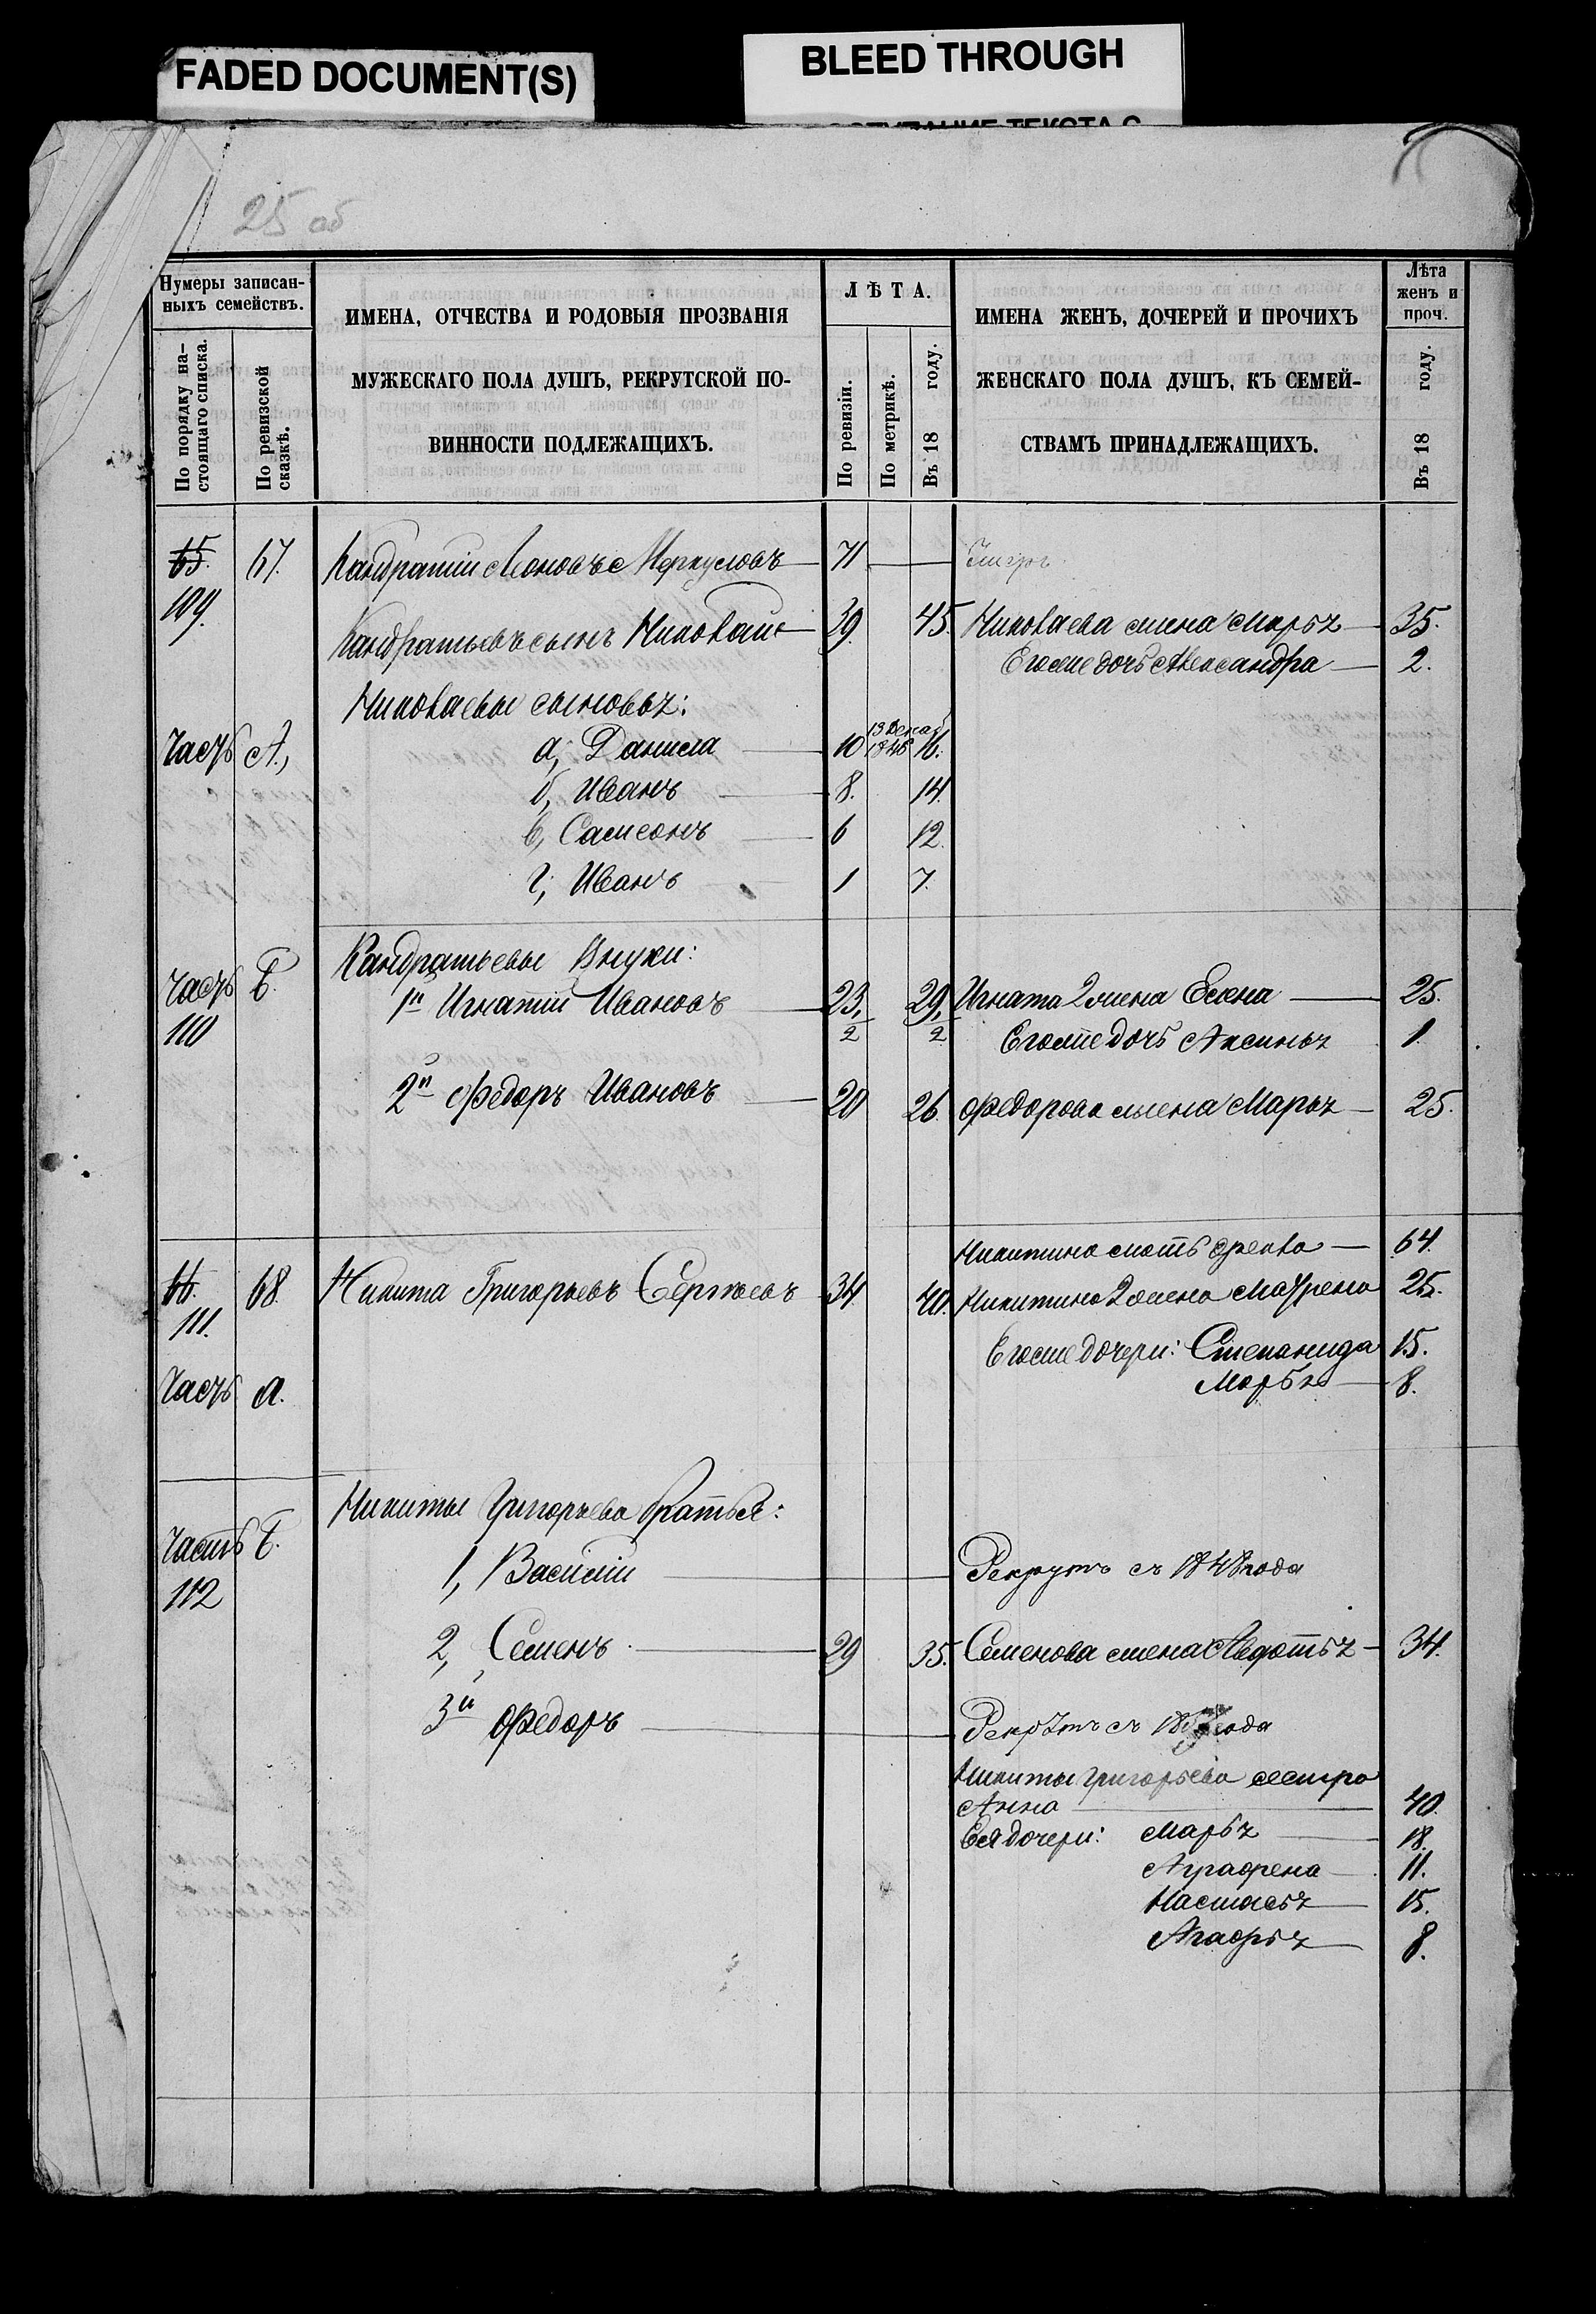 FADED DOCUMENT(S)
BLEED THROUGH
25 об
Нумеры записан-
ныхъ семействъ.
По порядку на-
стоящаго списка.
По ревизской
сказкѣ.
ИМЕНА, ОТЧЕСТВА И РОДОВЫЯ ПРОЗВАНІЯ
МУЖЕСКАГО ПОЛА ДУШЪ, РЕКРУТСКОЙ ПО-
ВИННОСТИ ПОДЛЕЖАЩИХЪ.
ЛѢТА.
По ревизіи.
По метрикѣ.
Въ 18 году.
ИМЕНА ЖЕНЪ, ДОЧЕРЕЙ И ПРОЧИХЪ
ЖЕНСКАГО ПОЛА ДУШЪ, КЪ СЕМЕЙ-
СТВАМЪ ПРИНАДЛЕЖАЩИХЪ.
Лѣта
женъ и
проч.
Въ 18 году.
65. 67. Кандратій Леоновъ Меркуловъ — 71 —
109. Кандратьевъ сынъ Николай — 39. 45. Николаева жена Марья — 35.
Егоже дочь Александра — 2.
Николаевы сыновья:
Часть А, а, Данила — 10 13 Декаб 1846 16.
б, Иванъ — 8. 14.
в, Самсонъ — 6 12.
г, Иванъ — 1 7.
Кандратьевы Внуки:
Часть Б. 1й Игнатій Ивановъ — 23,/2 29,/2 Игната 2 жена Елена — 25.
110 Егоже дочь Аксинья 1.
2й Федоръ Ивановъ — 20 26. Федорова жена Марья — 25.
Никитина мать Фекла — 64.
66. 68. Никита Григорьевъ Сергѣевъ 34 40. Никитина 2 жена Маѳрена 25.
111. Егоже дочери: Степанида 15.
Марья — 8.
Часть а.
Никиты Григорьева братья:
Часть Б. 1, Василій — Рекрутъ съ 1848 года
112
2, Семенъ — 29 35. Семенова жена Авдотья — 34.
3й Федоръ — Рекрутъ съ года
Никиты Григорьева сестра
Анна — 40.
Ея дочери: Марья — 18.
Аграфена — 11.
Настасья — 15.
Агафья — 8.